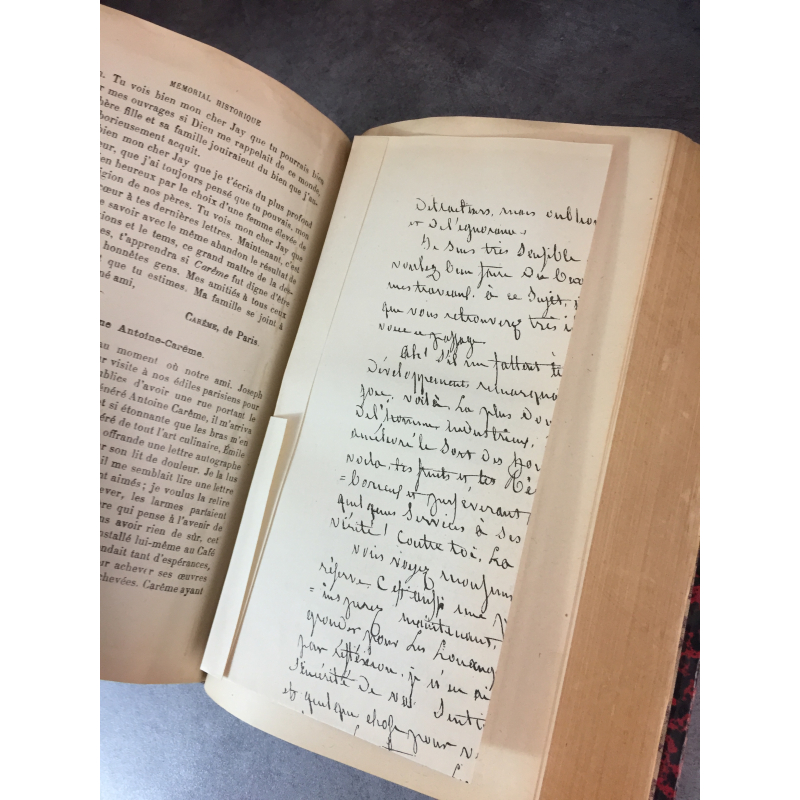 MÉMORIAL HISTORIQUE
Tu vois bien mon cher Jay que tu pourrais bien
mes ouvrages si Dieu me rappelait de ce monde,
fille et sa famille jouiraient du bien que j'au-
borieusement acquit.
bien mon cher Jay que je t'écris du plus profond
que j'ai toujours pensé que tu pouvais, mon
en heureux par le choix d'une femme élevée de
igion de nos pères. Tu vois mon cher Jay que
cœur à tes dernières lettres. Maintenant, c'est
savoir avec le même abandon le résultat de
sions et le tems, ce grand maître de la des-
t'apprendra si Carême fut digne d'être
honnêtes gens. Mes amitiés à tous ceux
que tu estimes. Ma famille se joint à
né ami,
CARÊME, de Paris.
ne Antoine-Carême.
au moment où notre ami, Joseph
visite à nos édiles parisiens pour
ublics d'avoir une rue portant le
énéré Antoine Carême, il m'arriva
t si étonnante que les bras m'en
éré de tout l'art culinaire, Émile
offrande une lettre autographe
son lit de douleur. Je la lus
il me semblait lire une lettre
nt aimés ; je voulus la relire
ever, les larmes parlaient
re qui pense à l'avenir de
ns avoir rien de sûr, cet
nstallé lui-même au Café
ondait tant d'espérances,
ur achever ses œuvres
chevées. Carême ayant
mais oublion
et de l'ignorance
Je suis très sensible
voulez bien faire de
mes travaux. à ce sujet,
que vous retrouverez très
passage.
Ah! s'il me fallait
Développement remarqua
voilà, la plus
de l'homme industrieux,
amélioré le sort des
voila, les fruits et les
et persévérant
quelques services à ses
vérité! contre toi, la
vous voyez
réserve c'est aussi une
maintenant,
pour les Louang
par réfléxion, je
de vos Sent
et quelque chose pour v